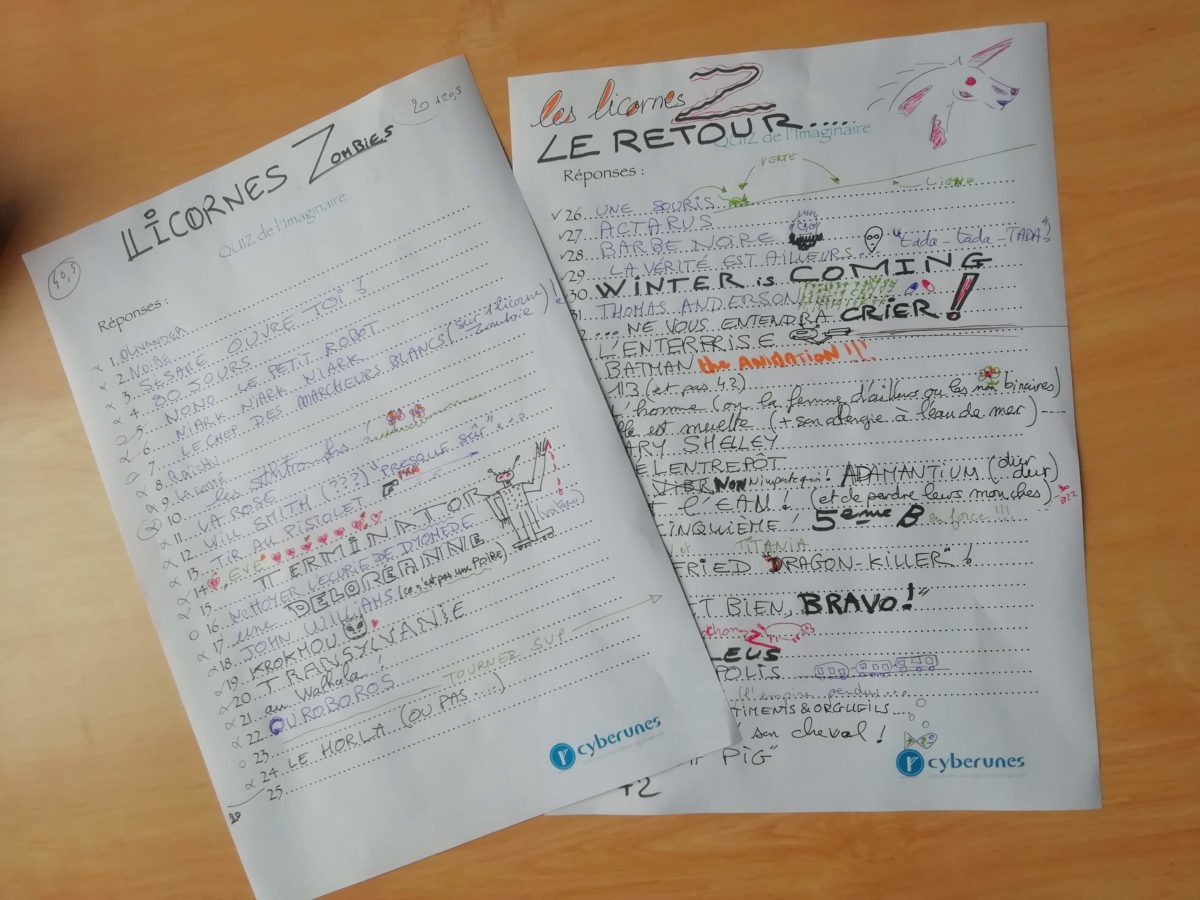 20 +20,5
LICORNES ZOMBIES
QUIZ de l'Imaginaire
40,5
Réponses :
1. OLIVANDER
2. NOIRE
3. SESAME OUVRE TOI !
4. 80 JOURS
5. NONO LE PETIT ROBOT
6. NIARK NIARK NIARK
7. LE CHEF DES MARCHEURS BLANCS (sur 1 licorne Zombie) !
8. RAISIN
9. LA GOUTE
10.
11. LA ROSE
12. WILL SMITH (???) "PRESQUE SÛR"....
13. TIR AU PISTOLET
14. EVE
15. TERMINATOR
16. NETTOYER L'ECURIE DE DIOMEDE
17. une DELOREANNE
18. JOHN WILLIAMS (ce n'est pas une Poire)
19. KROKMOU
20. TRANSYLVANIE
21. au Walhala !
22. OUROBOROS
23. TOURNER SVP
24. LE HORLA (OU PAS ....)
25.
20
cyberunes
les licornes Z
LE RETOUR....
QUIZ de l'Imaginaire
Réponses :
VERTE
LIGNE
26. UNE SOURIS
27. ACTARUS
28. BARBE NOIRE
29. LA VÉRITÉ EST AILLEURS... "tada-tada-TADA"!
30. WINTER is COMING
31. THOMAS ANDERSON
... NE VOUS ENTENDRA CRIER !
L'ENTERPRISE
BATMAN the ANIMATION !!!
1/3 (et pas 42)
homme (ou la femme d'ailleurs ou les non binaires)
est muette (+ son allergie à l'eau de mer)
ARY SHELLEY
EL ENTREPÔT
NON N'importe quoi ! ADAMANTIUM (dur dur)
l'EAN ! (et de perdre leurs manches)
CINQUIÈME ! 5eme B en force !!!
et TITANIA
FRIED "DRAGON-KILLER" !
T BIEN, BRAVO !"
LEUS
POLIS
(l'empire perdu...
TIMENTS & ORGUEILS....
son cheval !
PIG"
+2
cyberunes